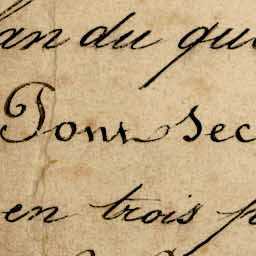 an du qu
Tome sec
en trois p